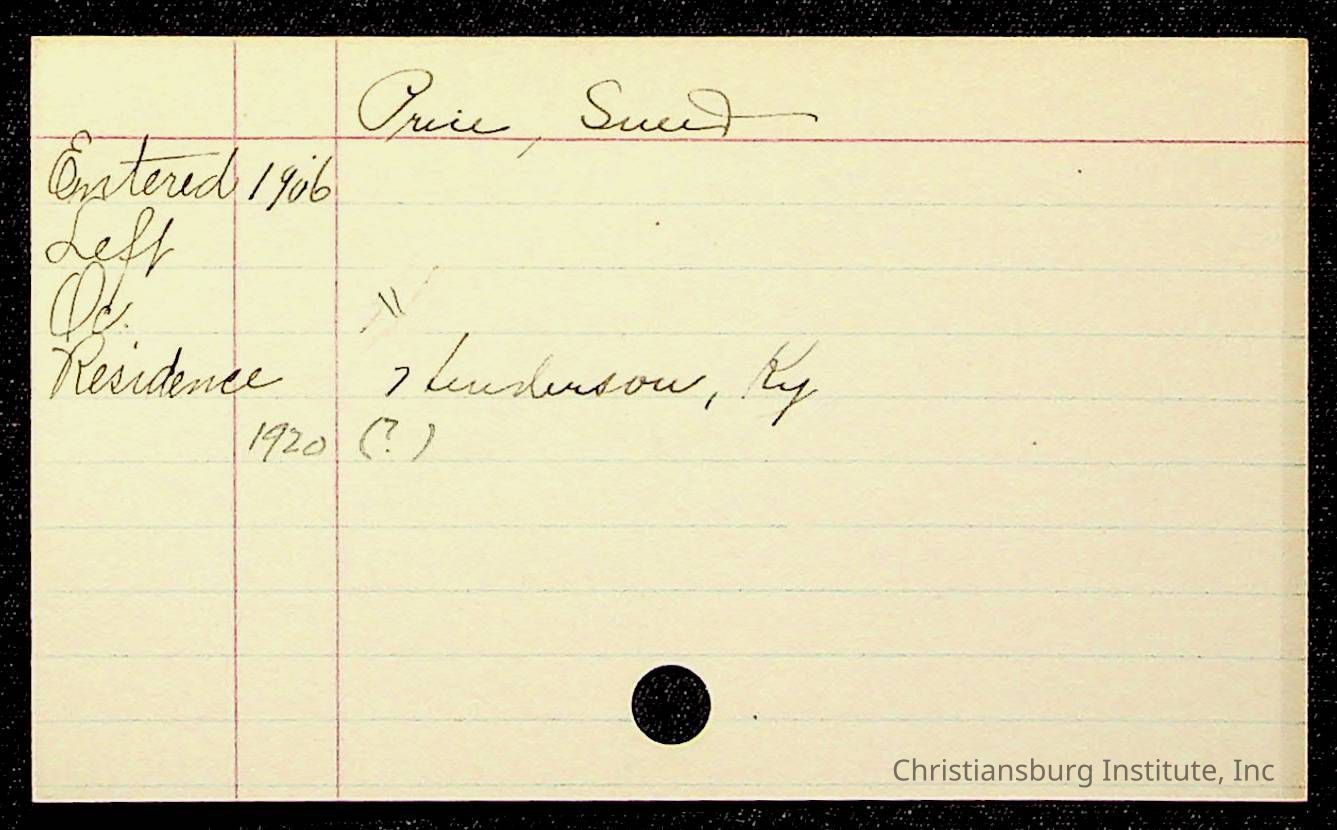 Price, Sneed
Entered 1906
Left
Oc. "
Residence Henderson, Ky
1920 (?)
Christiansburg Institute, Inc